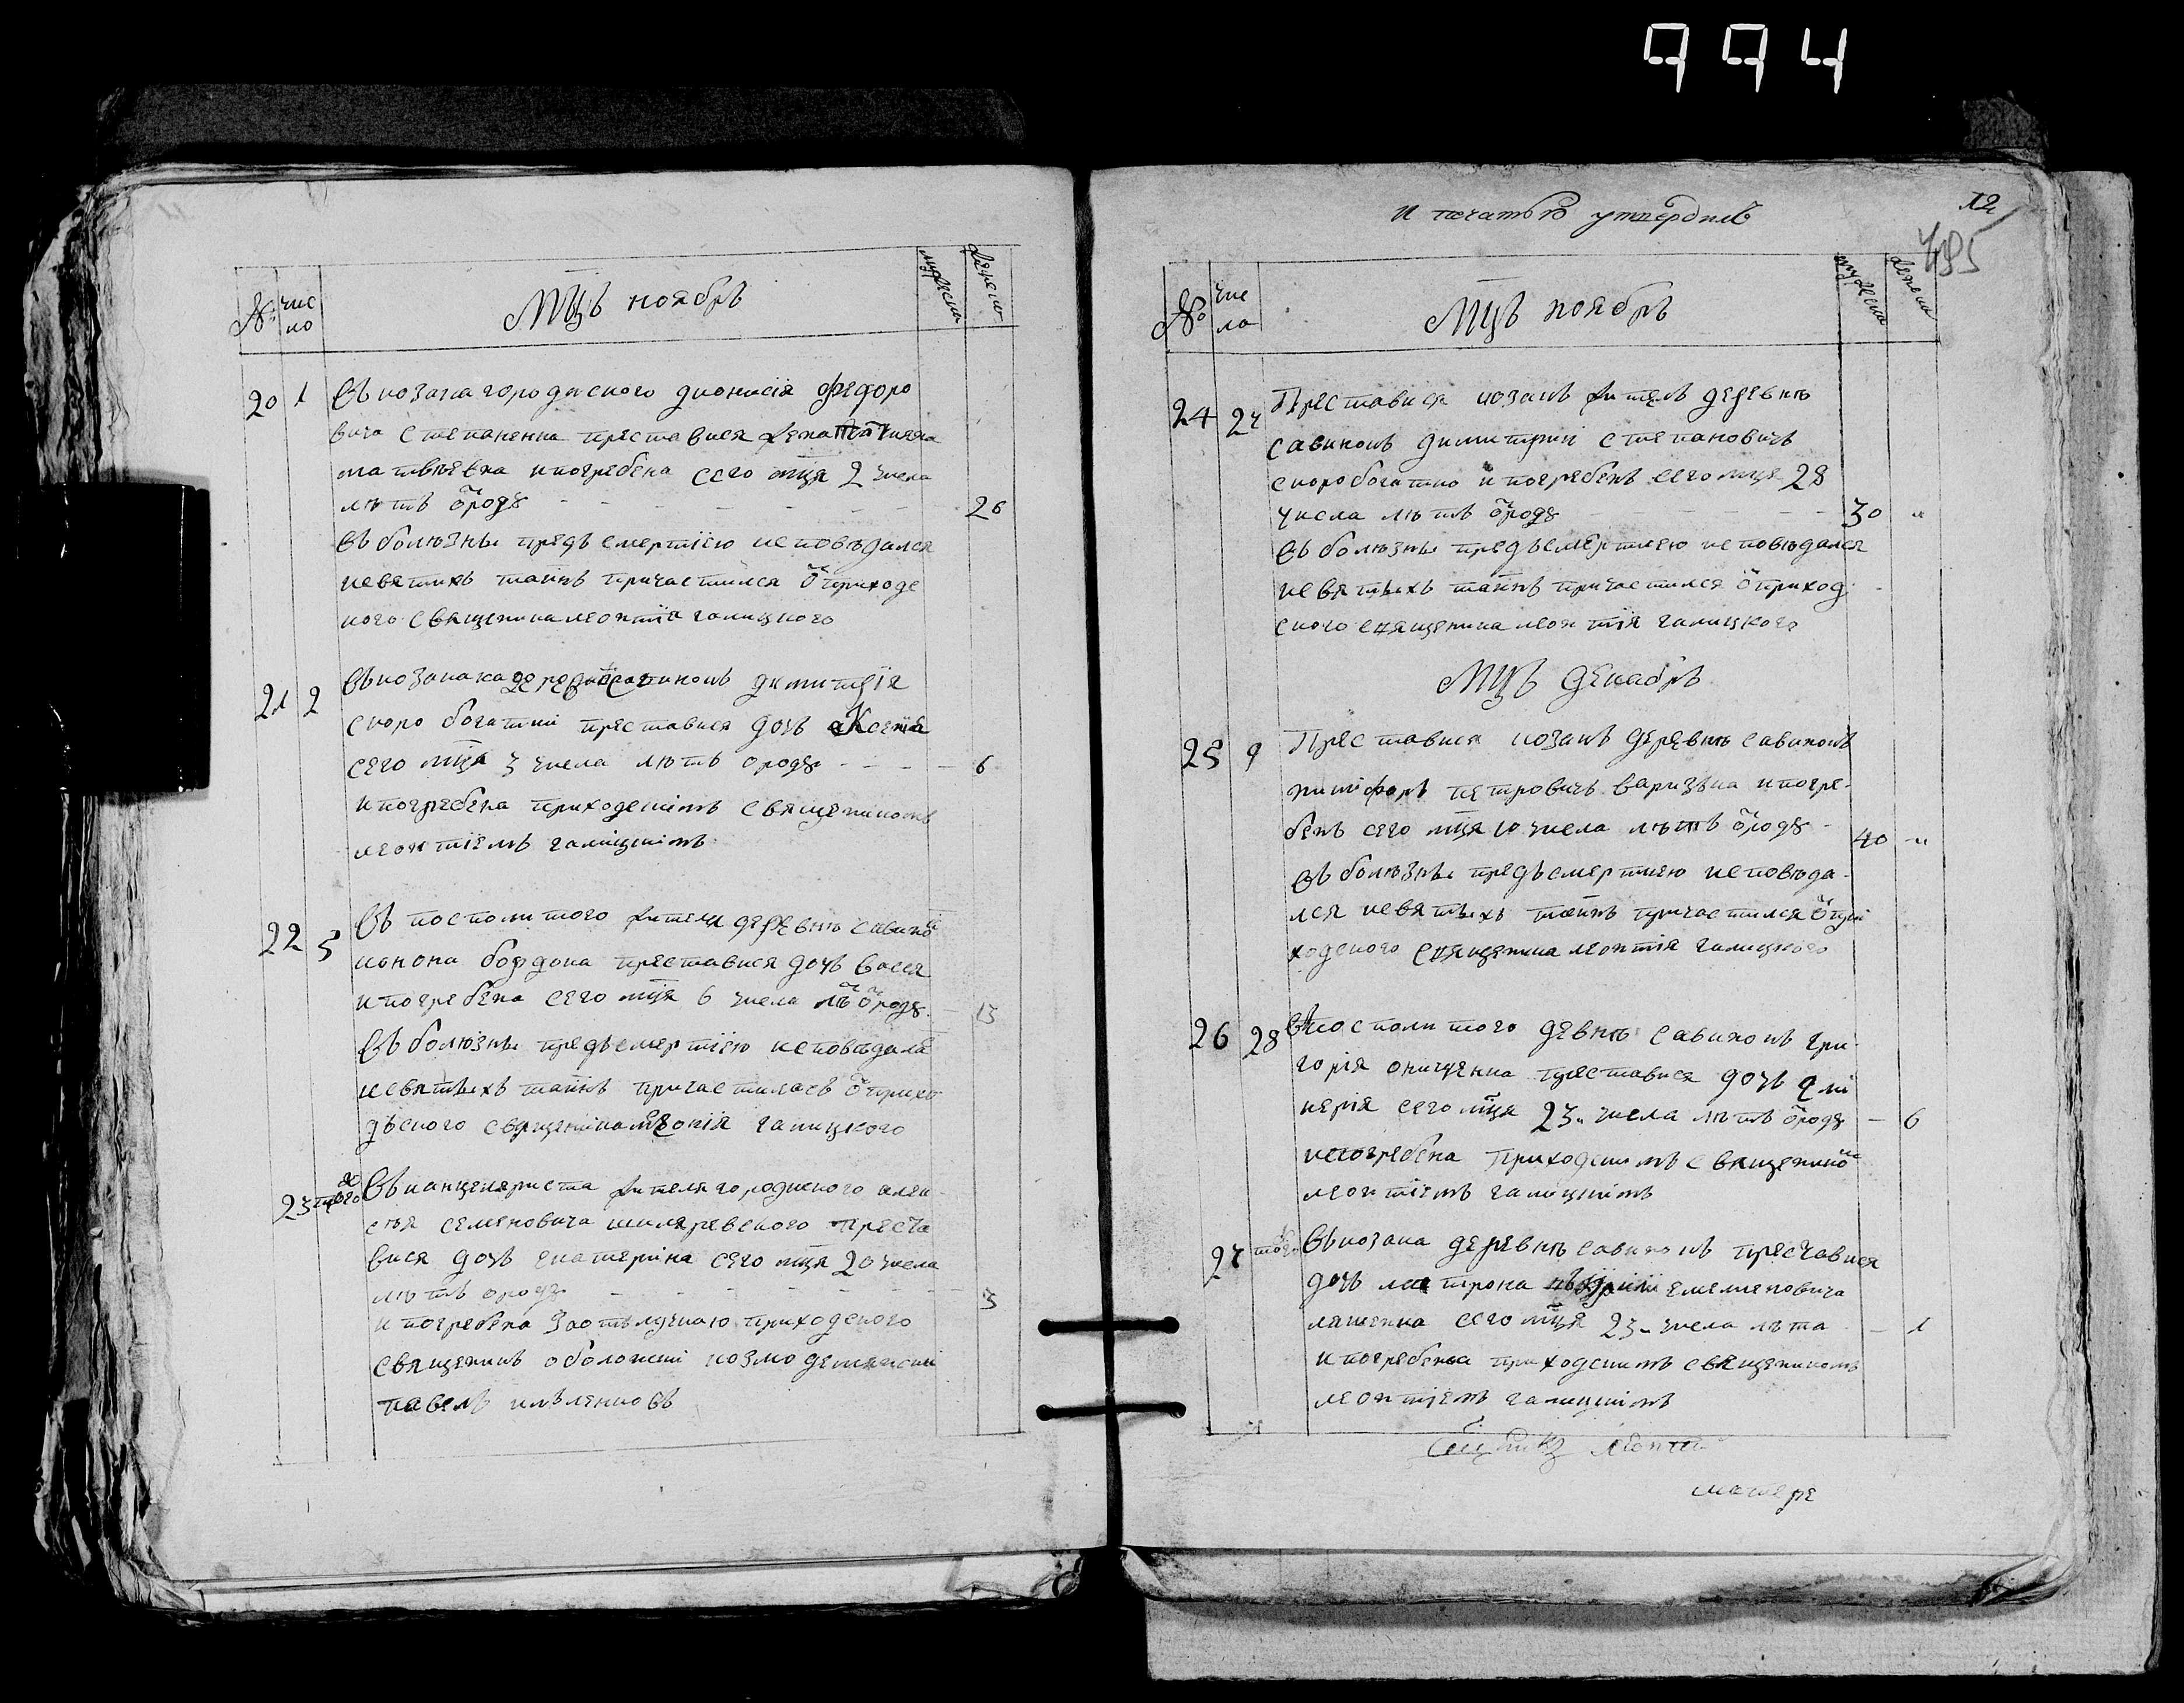 994
№ чис
ло
Мцъ ноябръ
мужеска
женска
20 1 Въ козака городиского дионисія федоро
вича степаненка преставися жена татияна
матвѣевна и погребена сего мця 2 числа
лѣтъ ѿ роду 26
въ болѣзны предъ смертїею исповѣдался
и святихъ таинъ причастился ѿ приходс
кого священика леонтїя галицкого
21 2 Въ козака деревнѣ савинокъ димитрїя
скоро богатши преставися дочь Ксенїя
сего мця 3 числа лѣтъ ѿ роду 6
и погребена приходскімъ священикомъ
леонтіемъ галицкімъ
22 5 Въ посполитого жителя деревнѣ савино
конона бордона преставися дочь васся
и погребена сего мця 6 числа лѣ ѿ роду 13
въ болѣзны предъ смертїею исповѣдала
и святыхъ таинъ причастилась ѿ прихо
дского священика леонтія галицкого
23 того Въ канцеляриста жителя городиского алек
сѣя семеновича шкляревского преста
вися дочь екатерина сего мця 20 числа
лѣтъ ѿ роду 3
и погребена за отлучкаю приходского
священикъ оболонскї козмодемянскій
павелъ
12
485
и печатью утвердилъ
№ чис
ла
Мцъ ноябръ
мужеска
женска
24 27 Преставися козакъ житель деревнѣ
савинокъ димитрий степановичъ
скоробогатко и погребенъ сего мця 28
числа лѣтъ ѿ роду 30 "
въ болѣзны предъ смертїею исповѣдался
и святыхъ таинъ причастился ѿ приход
ского священика леонтїя галицкого
Мцъ декабръ
25 9 Преставися козакъ деревнѣ савинокъ
никіфоръ петровичъ и погре
бенъ сего мця 10 числа лѣтъ ѿ роду 40 "
въ болѣзны предъ смертїею исповѣда
лся и святыхъ таинъ причастился ѿ при
ходского священика леонтія галицкого
26 28 въ посполитого девнѣ савинокъ гри
горія онищенка преставися дочь гли
керія сего мця 23 числа лѣтъ ѿ роду 6
и погребена приходскимъ священико
леонтіемъ галицкімъ
27 того Въ козака деревнѣ савинокъ преставися
дочь матрона емелияновича
ляшенка сего мця 23 числа лѣта 1
и погребена приходскимъ священикомъ
леонтіемъ галицкімъ